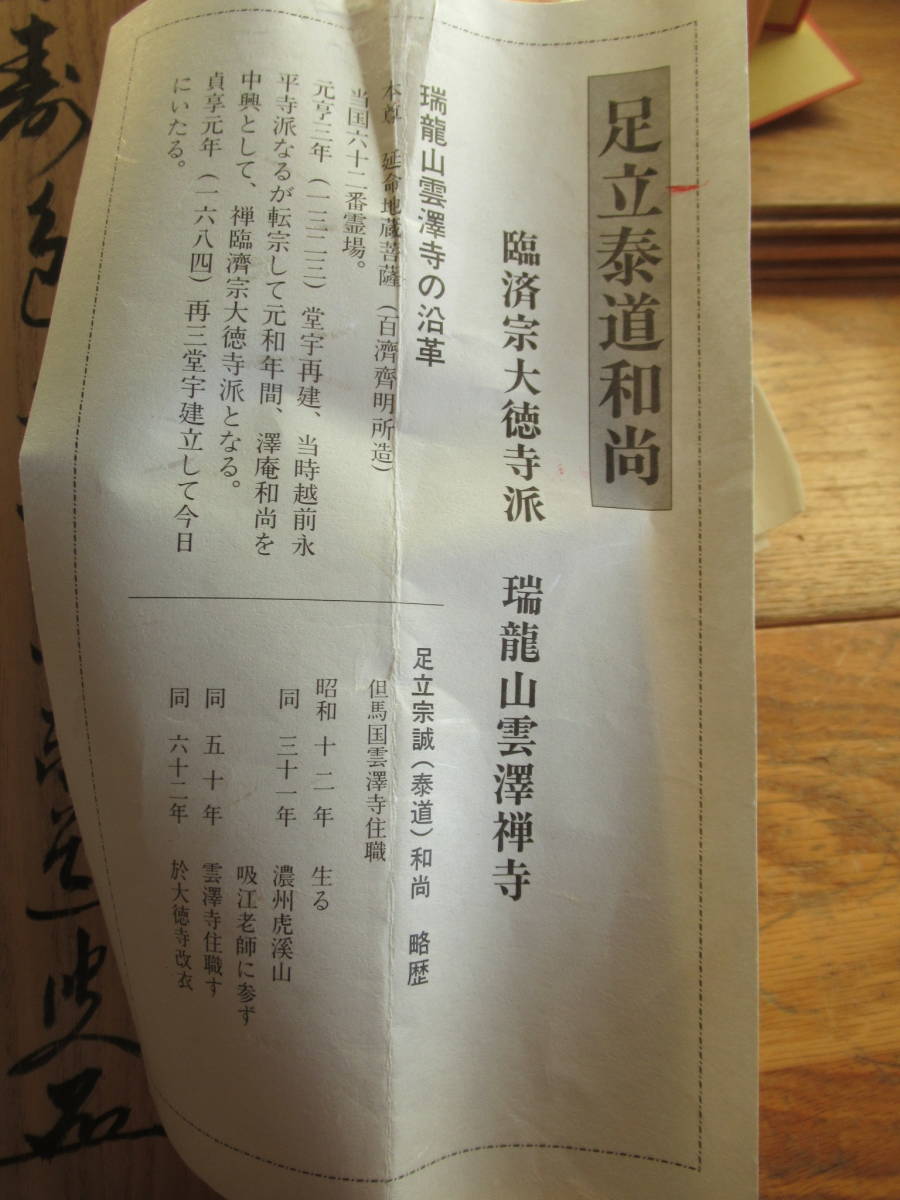 足立泰道和尚
臨済宗大徳寺派　瑞龍山雲澤禅寺
瑞龍山雲澤寺の沿革
本尊　延命地蔵菩薩（百濟齊明所造）
当国六十二番霊場。
元亨三年（一三二三）堂宇再建、当時越前永
平寺派なるが転宗して元和年間、澤庵和尚を
中興として、禅臨濟宗大徳寺派となる。
貞享元年（一六八四）再三堂宇建立して今日
にいたる。
足立宗誠（泰道）和尚　略歴
但馬国雲澤寺住職
昭和　十二年　生る
同　三十一年　濃州虎溪山
吸江老師に参ず
同　五十年　雲澤寺住職す
同　六十二年　於大徳寺改衣
寿色